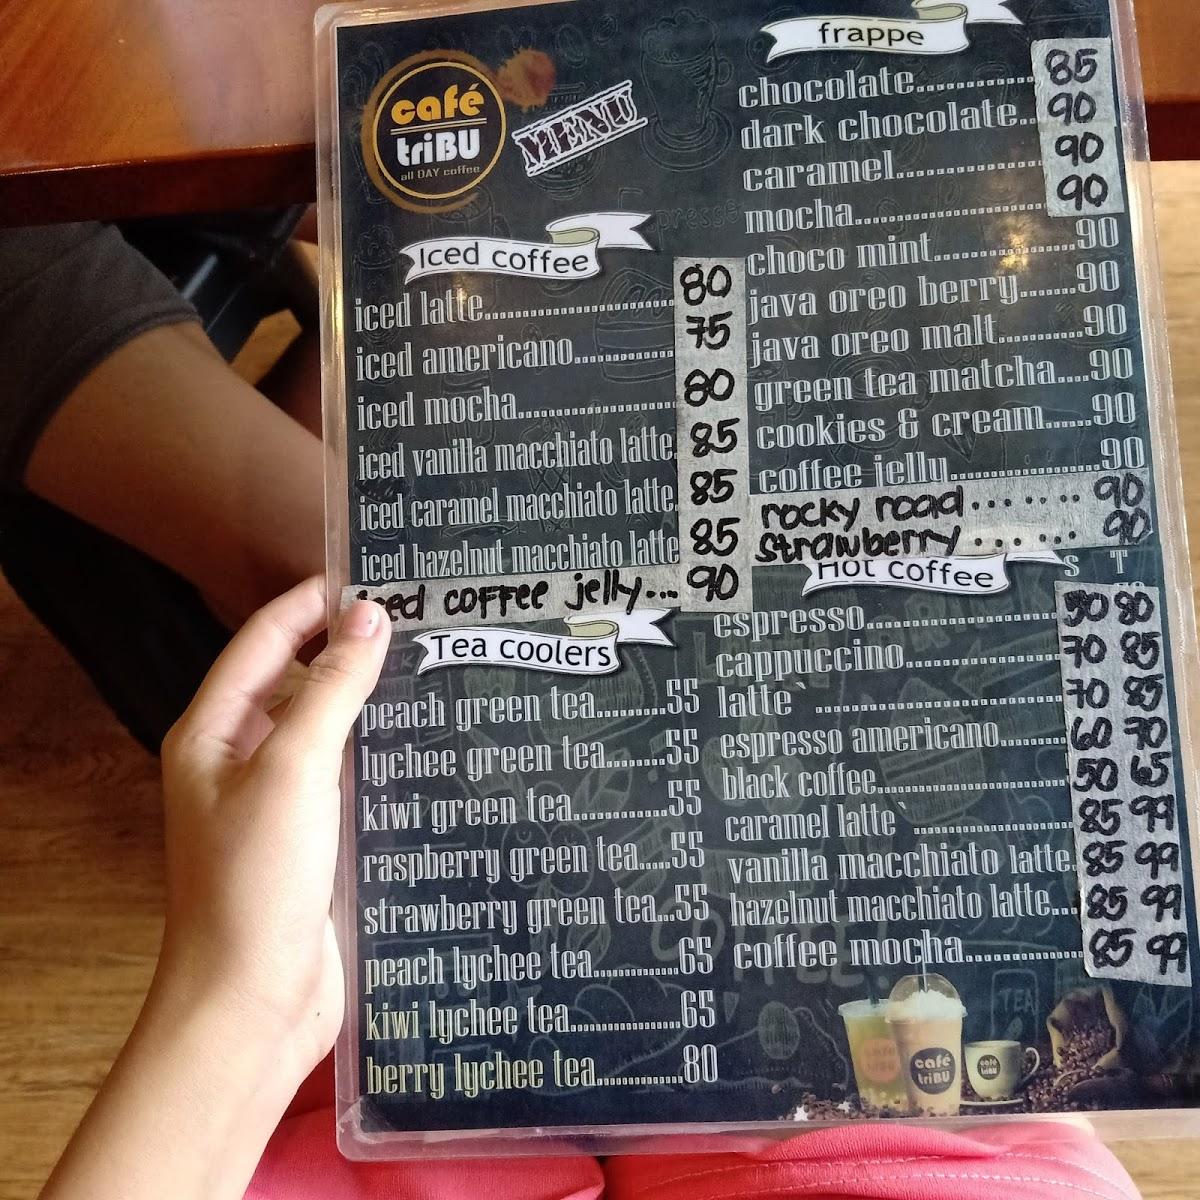 café
triBU
all DAY coffee
MENU
Iced coffee
iced latte 80
iced americano 75
iced mocha 80
iced vanilla macchiato latte 85
iced caramel macchiato latte 85
iced hazelnut macchiato latte 85
iced coffee jelly... 90
Tea coolers
peach green tea 55
lychee green tea 55
kiwi green tea 55
raspberry green tea 55
strawberry green tea 55
peach lychee tea 65
kiwi lychee tea 65
berry lychee tea 80
frappe
chocolate 85
dark chocolate 90
caramel 90
mocha 90
choco mint 90
java oreo berry 90
java oreo malt 90
green tea matcha 90
cookies & cream 90
coffee jelly 90
rocky road 90
strawberry 90
Hot coffee S T
espresso 50 80
cappuccino 70 85
latte` 70 85
espresso americano 60 70
black coffee 50 65
caramel latte` 85 99
vanilla macchiato latte 85 99
hazelnut macchiato latte 85 99
coffee mocha 85 99
café
triBU
café
triBU
café
triBU